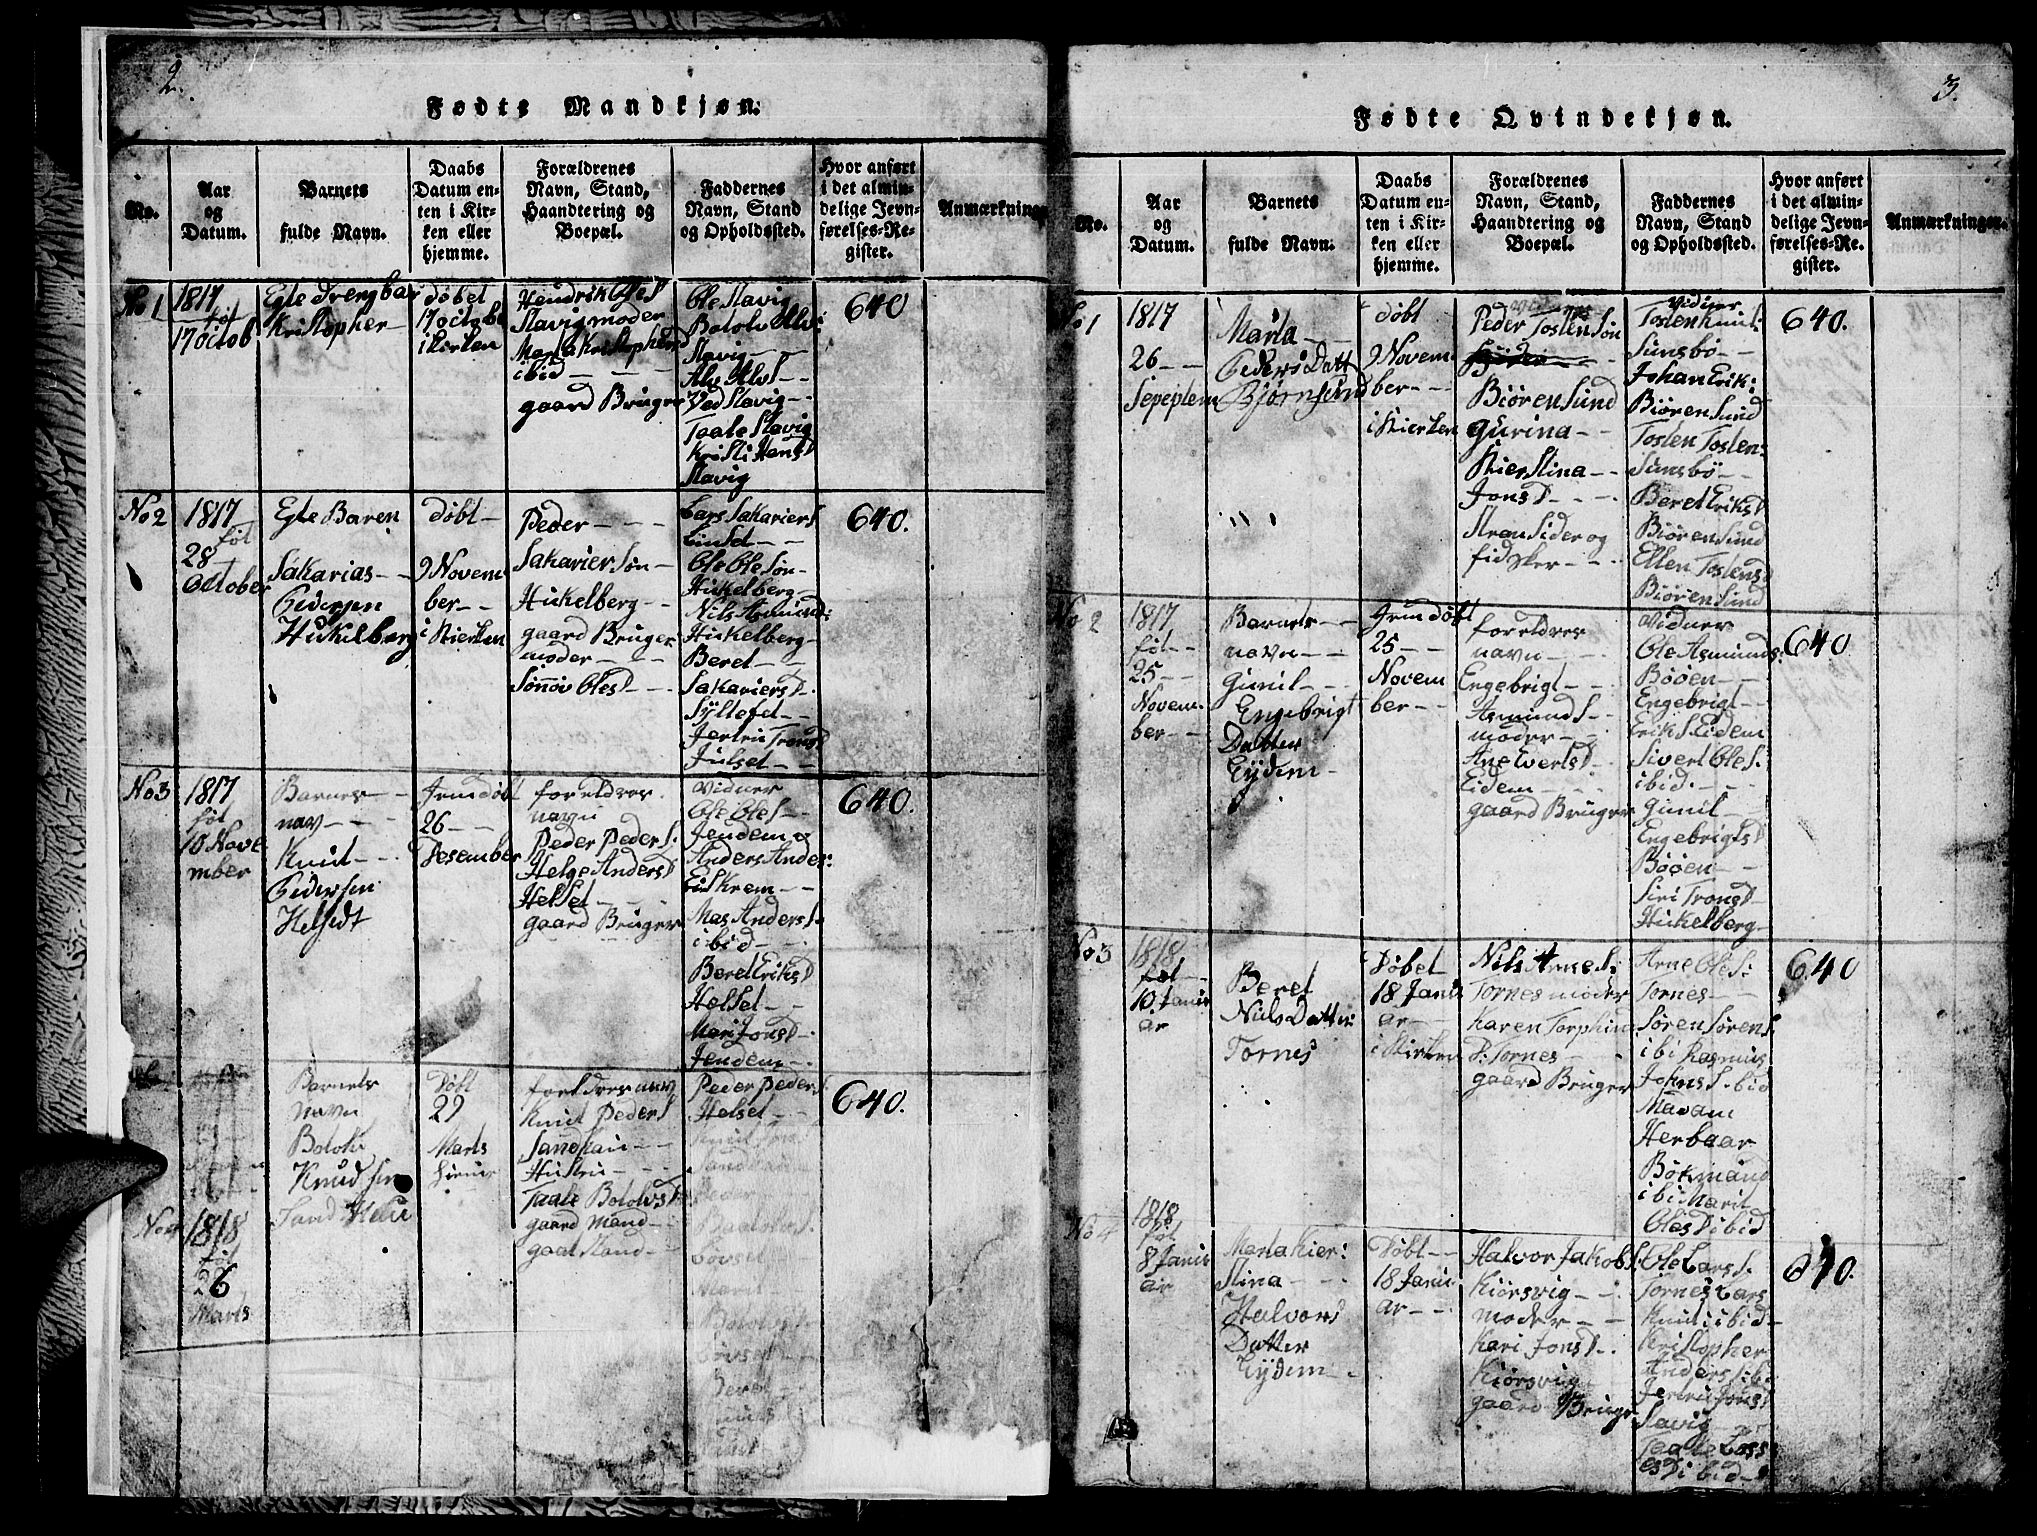 2.
Fødte Mandkjøn.
No.
Aar
og
Datum.
Barnets
fulde Navn.
Daabs
Datum en-
ten i Kir-
ken eller
hjemme.
Forældrenes
Navn, Stand,
Haandtering og
Boepæl.
Faddernes
Navn, Stand
og Opholdssted.
Hvor anført
i det almin-
delige Jevn-
førelses-Re-
gister.
Anmærkninger
No 1
1817
føt
17 octob
Egte Drengbar
Kristopher
døbet
17 octobe
i kirken
Hendrik Oles
Slavig moder
Marta Kristophersd
ibid
gaard Bruger
Ole Slavig
Botolv Olv:
Slavig
Alv Alvs
Ved Slavig
Taale Slavig
Kristi Hansd
Slavig
640
No 2
1817
føt
28
October
Egte Baren
Sakarias
Pedersen
Hukelberg
døbt
9 Novem
ber
i Kierken
Peder
Sakarier søn
Hukelberg
gaard Bruger
moder
Sønnøv Olesd
Lars Sakariers
Linset
Ole Ole søn
Hukelberg
Nils Asmund:
Hukelberg
Beret
Sakariersd
Syltefet
Jertru Tronsd
Julset
640.
No 3
1817
føt
10 Nove
mber
Barnes
nav
Knut
Pedersen
Helsedt
Jemdøbt
26
Desember
foreldres
navn
Peder Peders.
Helge Andersd
Helset
gaard Bruger
vidner
Ole Oles
Jendem og
Anders Ander:
Eiskrem
Mas Anders
ibid
Beret Eriksd
Helset
Mari Jonsd
Jendem
640.
No 4
1818
føt
26
Marts
Barnets
navn
Botolv
Knudsen
Døbt
29
Marts
foreldres nav
Knut Peders
Hustru
Taale Botolvsd
gaard Mand
Peder Peders
Helset
Peder
Løvset
Marit
Botolvs
Løvset
640.
3.
Fødte Qvindekjøn.
No.
Aar
og
Datum.
Barnets
fulde Navn.
Daabs
Datum en-
ten i Kir-
ken eller
hjemme.
Forældrenes
Navn, Stand,
Haandtering og
Boepæl.
Faddernes
Navn, Stand
og Opholdssted.
Hvor anført
i det almin-
delige Jevn-
førelses-Re-
gister.
Anmærkninger.
No 1
1817
26
Sepeptem
Marta
Peders Datt
Bjørnsund
døbt
9 Novem
ber
i Kierken
Peder Tosten Søn
Biøren Sund
Gurina
Kier Stina
Jonsd
Stran Sider og
fidsker
vidner
Tosten Knut:
Sunsbø
Johan Erik:
Biøren Sund
Tosten Tosten:
Sunsbø
Beret Eriksd
Biøren Sund
Ellen Tostensd
Biøren Sund
640.
No 2
1817
føt
25
Novem
ber
Barnets
navn
Gunil
Engebrigt
Datter
Eydem
Jemdøbt
25
Novem
ber
foreldres
navn
Engebrigt
Asmunds
moder
Ane Evertsd
Eidem
gaard Bruger
vidner
Ole Asmunds:
Bøøen
Engebrigt
Eriks Eidem
Sivert Oles:
ibid.
Gunil
Engebrigtsd
Bøøen
Siri Tronsd
Hukelberg
640
No 3
1818
føt
10 Janu
ar
Beret
Niels Datter
Tornes
Døbet
18 Janu
ar
i Kirken
Nils Arnes:
Tornes moder
Karen Torphin
D: Tornes
gaard Bruger
Arne Oles:
Tornes
Søren Sørens.
ibi Rasmus
Johns S. ibid
Madam
Herbaar
Bøkmand
ibi Marit
Olesd ibid
640
No 4
1818
føt
8 Janu
ar
Marta Kier:
Stina
Halvors
Datter
Eydem
Døbt
18 Janu
ar
Halvor Jakobs.
Kiørsvig
moder
Kari Jonsd.
Kiørsvig
gaard Bruger
Ole Lars S.
Tornes Lars
Knut ibid
Kristopher
Anders S. ibi
Jertru Jonsd
Slavig
Taale Lars
esd ibid
640.